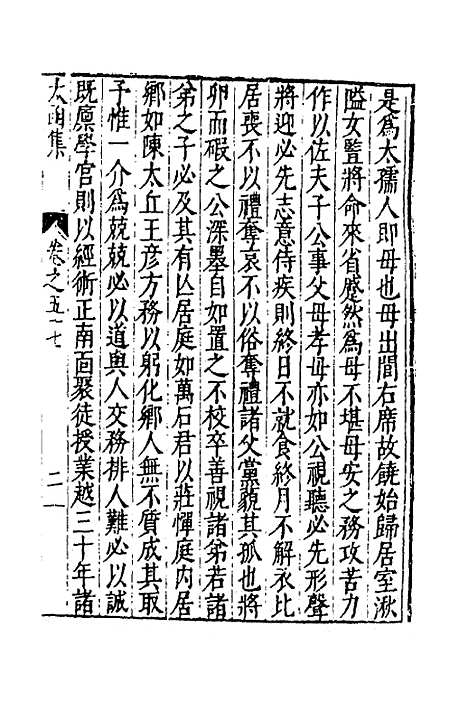 是爲太孺人即母也母出閭右席故饒始歸居室湫
隘女監將命來省蹙然爲母不堪母安之務攻苦力
作以佐夫子公事父母孝母亦如公視聽必先形聲
將迎必先志意侍疾則終日不就食終月不解衣比
居喪不以禮奪哀不以俗奪禮諸父黨藐其孤也將
卵而碬之公深墨自如置之不校卒善視諸弟若諸
弟之子必及其有亾居庭如萬石君以莊憚庭内居
鄉如陳太丘王彦方務以躬化鄉人無不質成其取
予惟一介爲兢兢必以道與人交務排人難必以誠
既廪學官則以經術正南面聚徒授業越三十年諸
太函集
卷之五十七
二